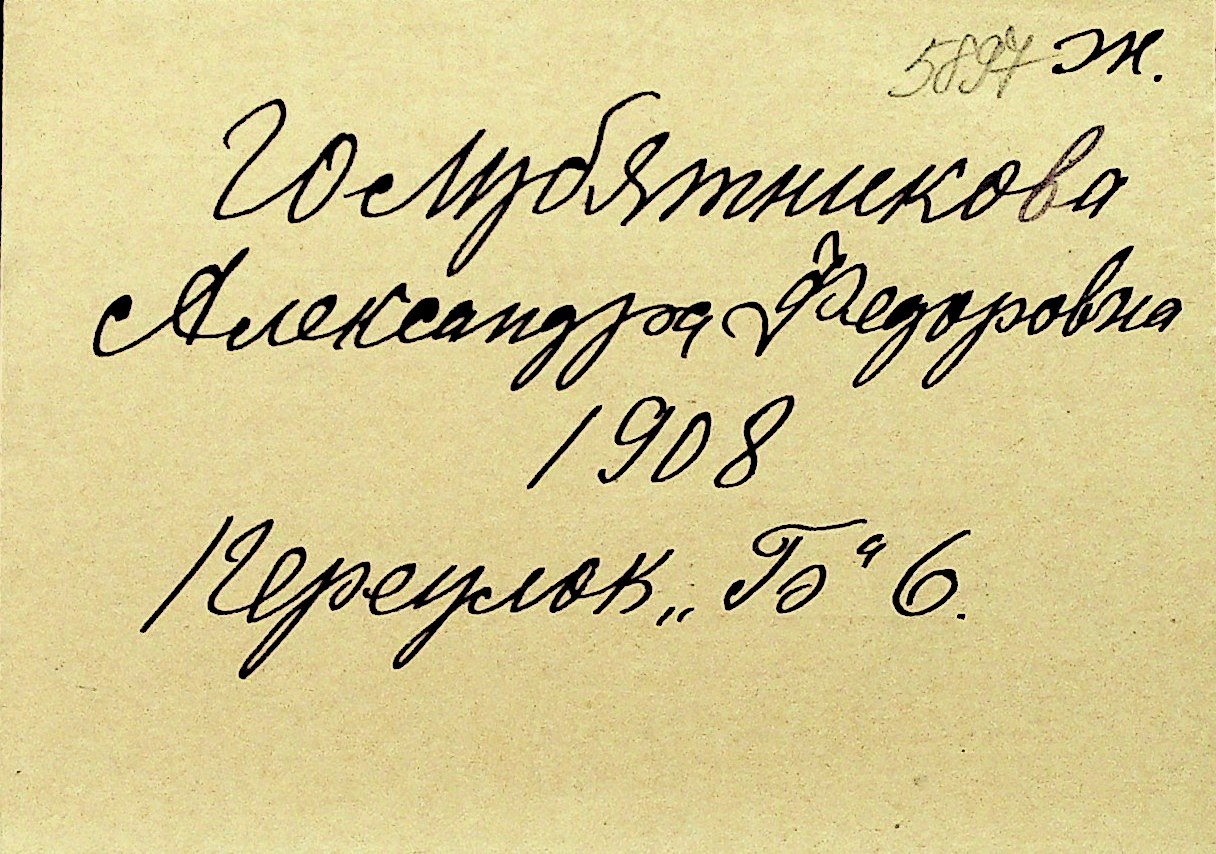 5897 Ж.
Голубятникова
Александра Федоровна
1908
Переулок „Б“ 6.